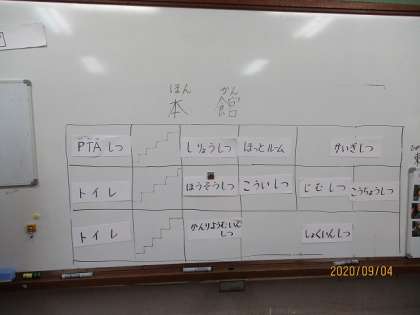 ほん かん
本 館
PTAしつ しりょうしつ ほっとルーム かいぎしつ
トイレ ほうそうしつ こういしつ じむしつ こうちょうしつ
トイレ かんりようむいんしつ しょくいんしつ
2020/09/04